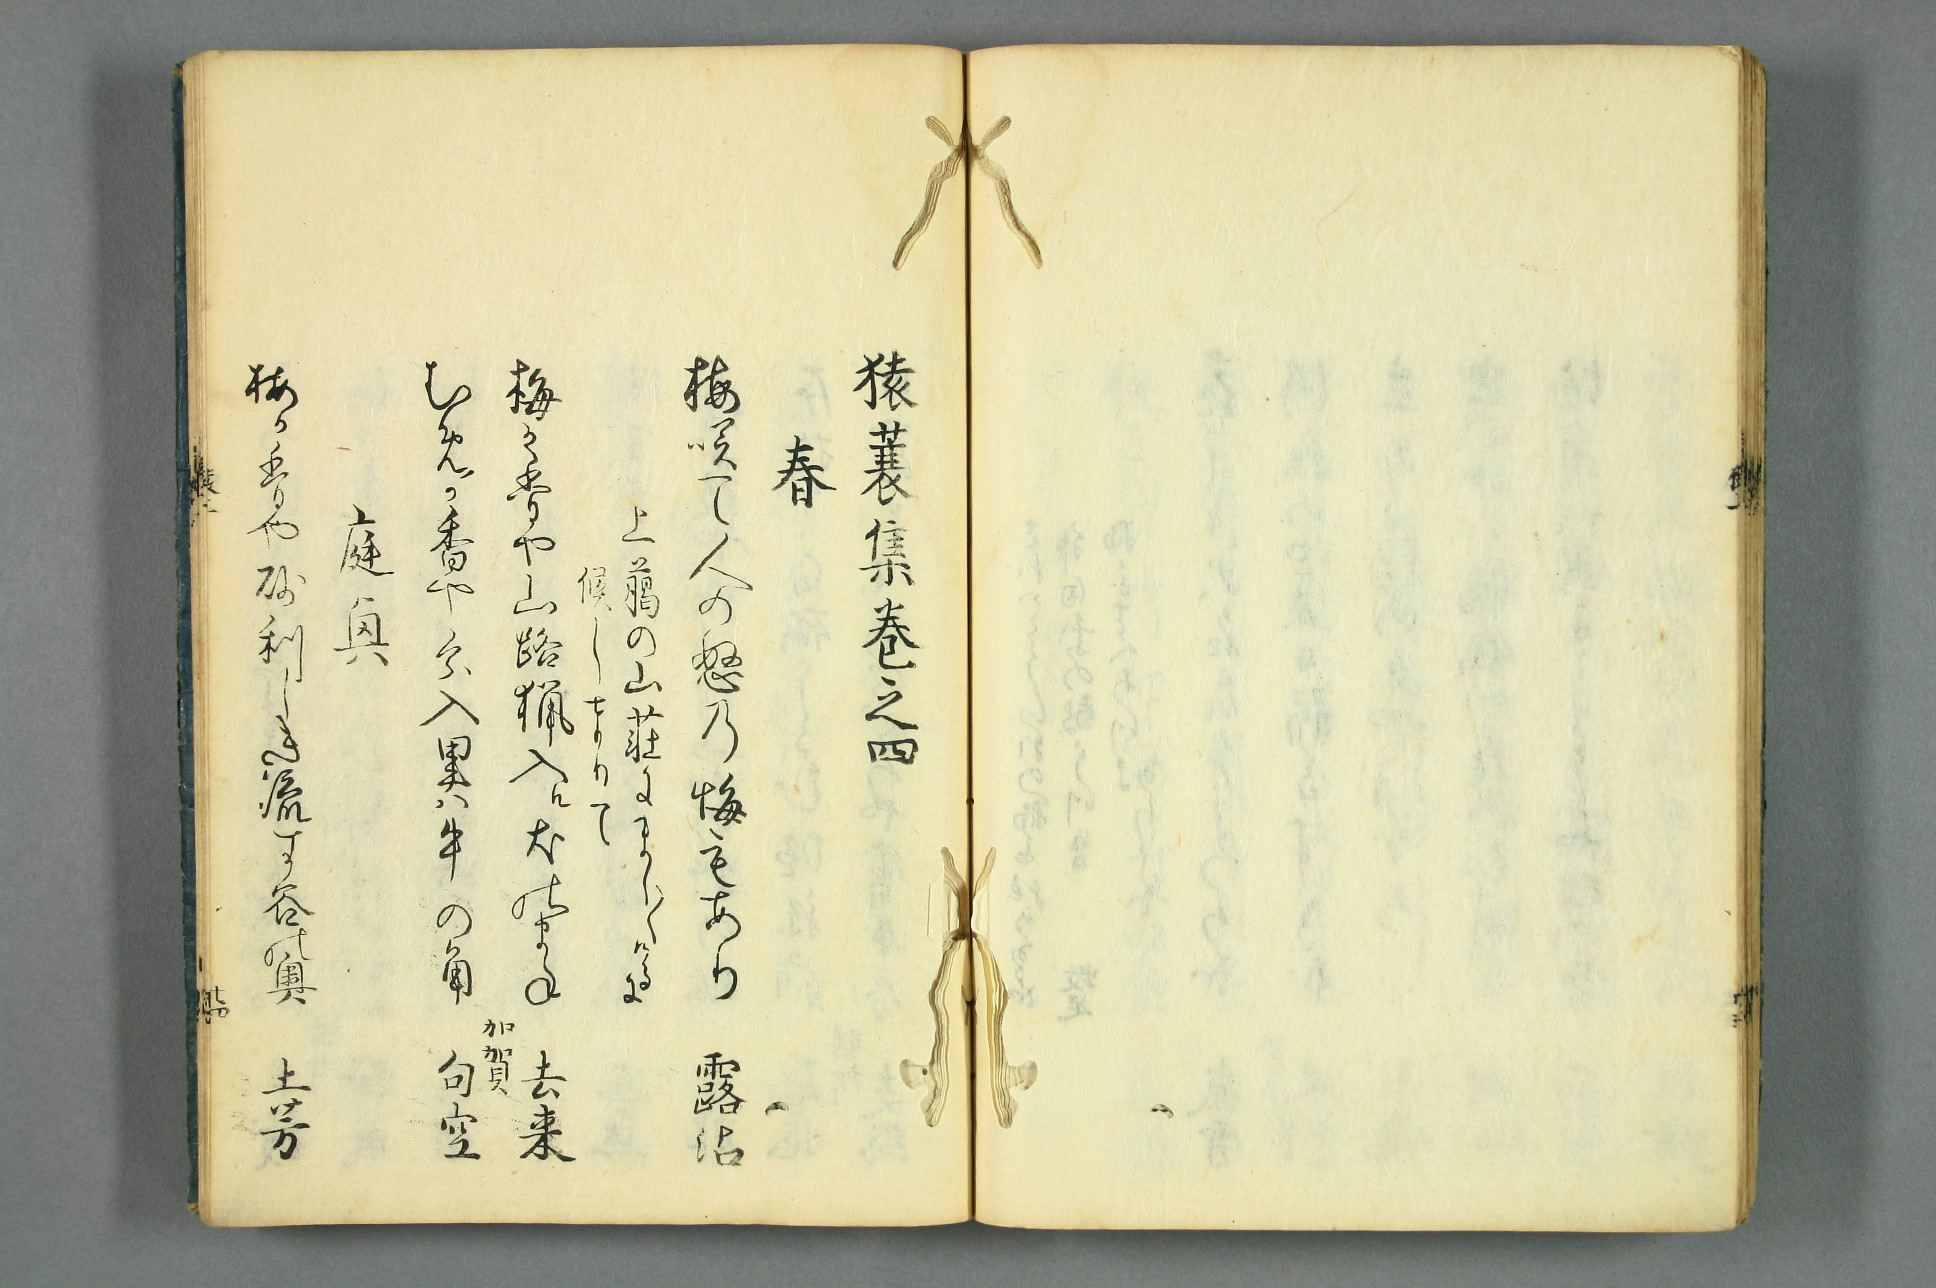 猿蓑集巻之四
春
梅咲て人の怒の悔もあり　露沾
上臈の山荘にましく／＼けるに
候し奉りて
梅か香や山路猟入ル犬のまね　去来
むめか香や分入里は牛の角　加賀 句空
庭興
梅か香や砂利しき流す谷の奥　土芳